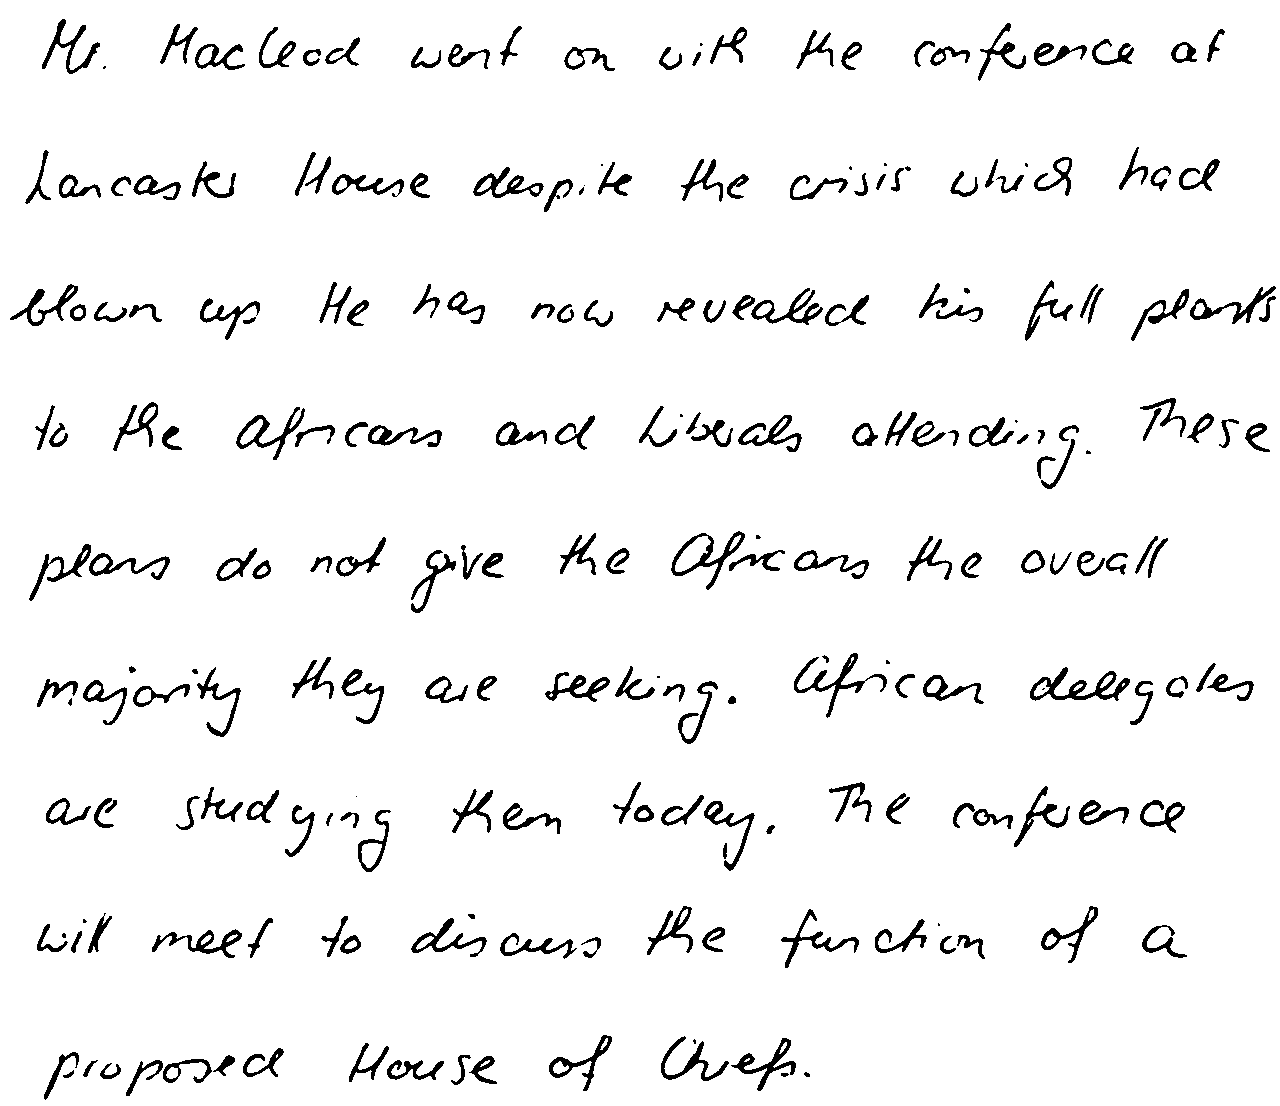 Mr. Macleod went on with the conference at
Lancaster House despite the crisis which had
blown up He has now revealed his full plants
to the Africans and Liberals attending. These
plans do not give the Africans the overall
majority they are seeking. African delegates
are studying them today. The conference
will meet to discuss the function of a
proposed House of Chiefs.